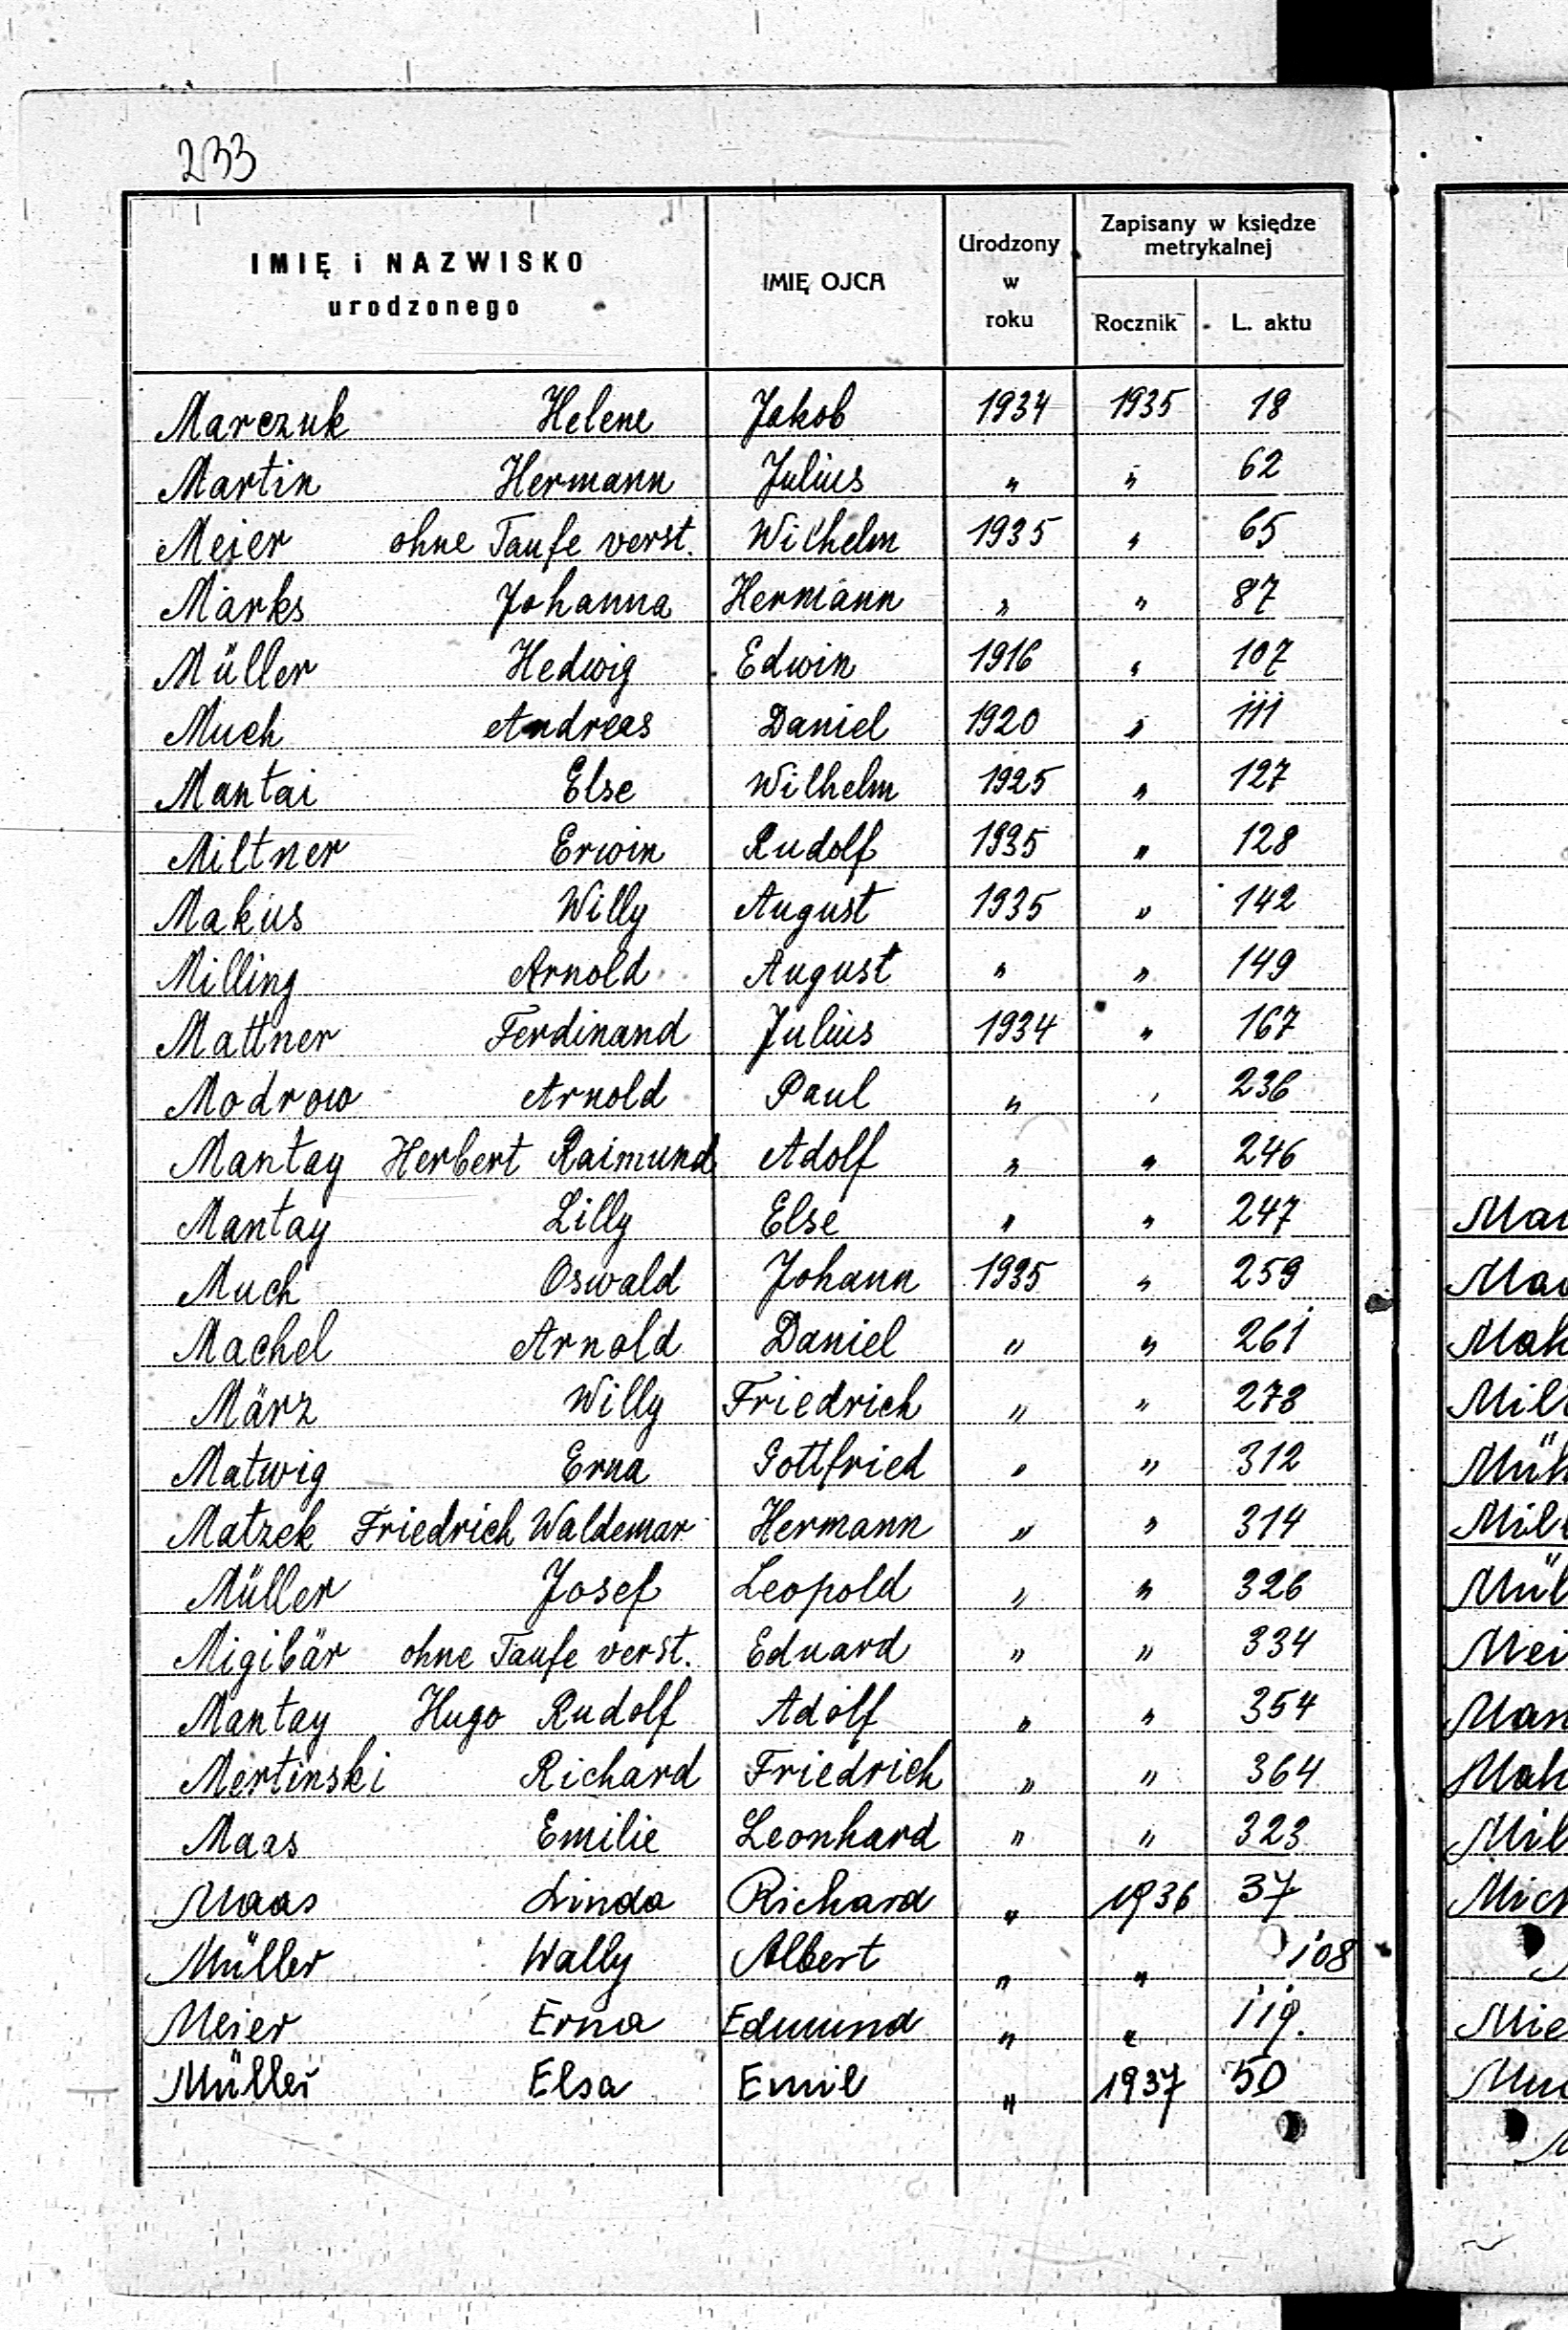 233
IMIĘ i NAZWISKO urodzonego IMIĘ OJCA Urodzony w roku Zapisany w księdze metrykalnej Rocznik L. aktu
Marczuk Helene Jakob 1934 1935 18
Martin Hermann Julius " " 62
Meier ohne Taufe verst. Wilhelm 1935 " 65
Marks Johanna Hermann " " 87
Müller Hedwig Edwin 1916 " 107
Much Andreas Daniel 1920 " 111
Mantai Else Wilhelm 1925 " 127
Miltner Erwin Rudolf 1935 " 128
Makus Willy August 1935 " 142
Milling Arnold August " " 149
Mattner Ferdinand Julius 1934 " 167
Modrow Arnold Paul " " 236
Mantay Herbert Raimund Adolf " " 246
Mantay Lilly Else " " 247
Much Oswald Johann 1935 " 259
Machel Arnold Daniel " " 261
März Willy Friedrich " " 278
Matwig Erna Gottfried " " 312
Matzek Friedrich Waldemar Hermann " " 314
Müller Josef Leopold " " 326
Migibär ohne Taufe verst. Eduard " " 334
Mantay Hugo Rudolf Adolf " " 354
Mertinski Richard Friedrich " " 364
Maas Emilie Leonhard " " 323
Maas Linda Richard " 1936 37
Müller Wally Albert " " 108
Meier Erna Edmund " " 119.
Müller Elsa Emil " 1937 50